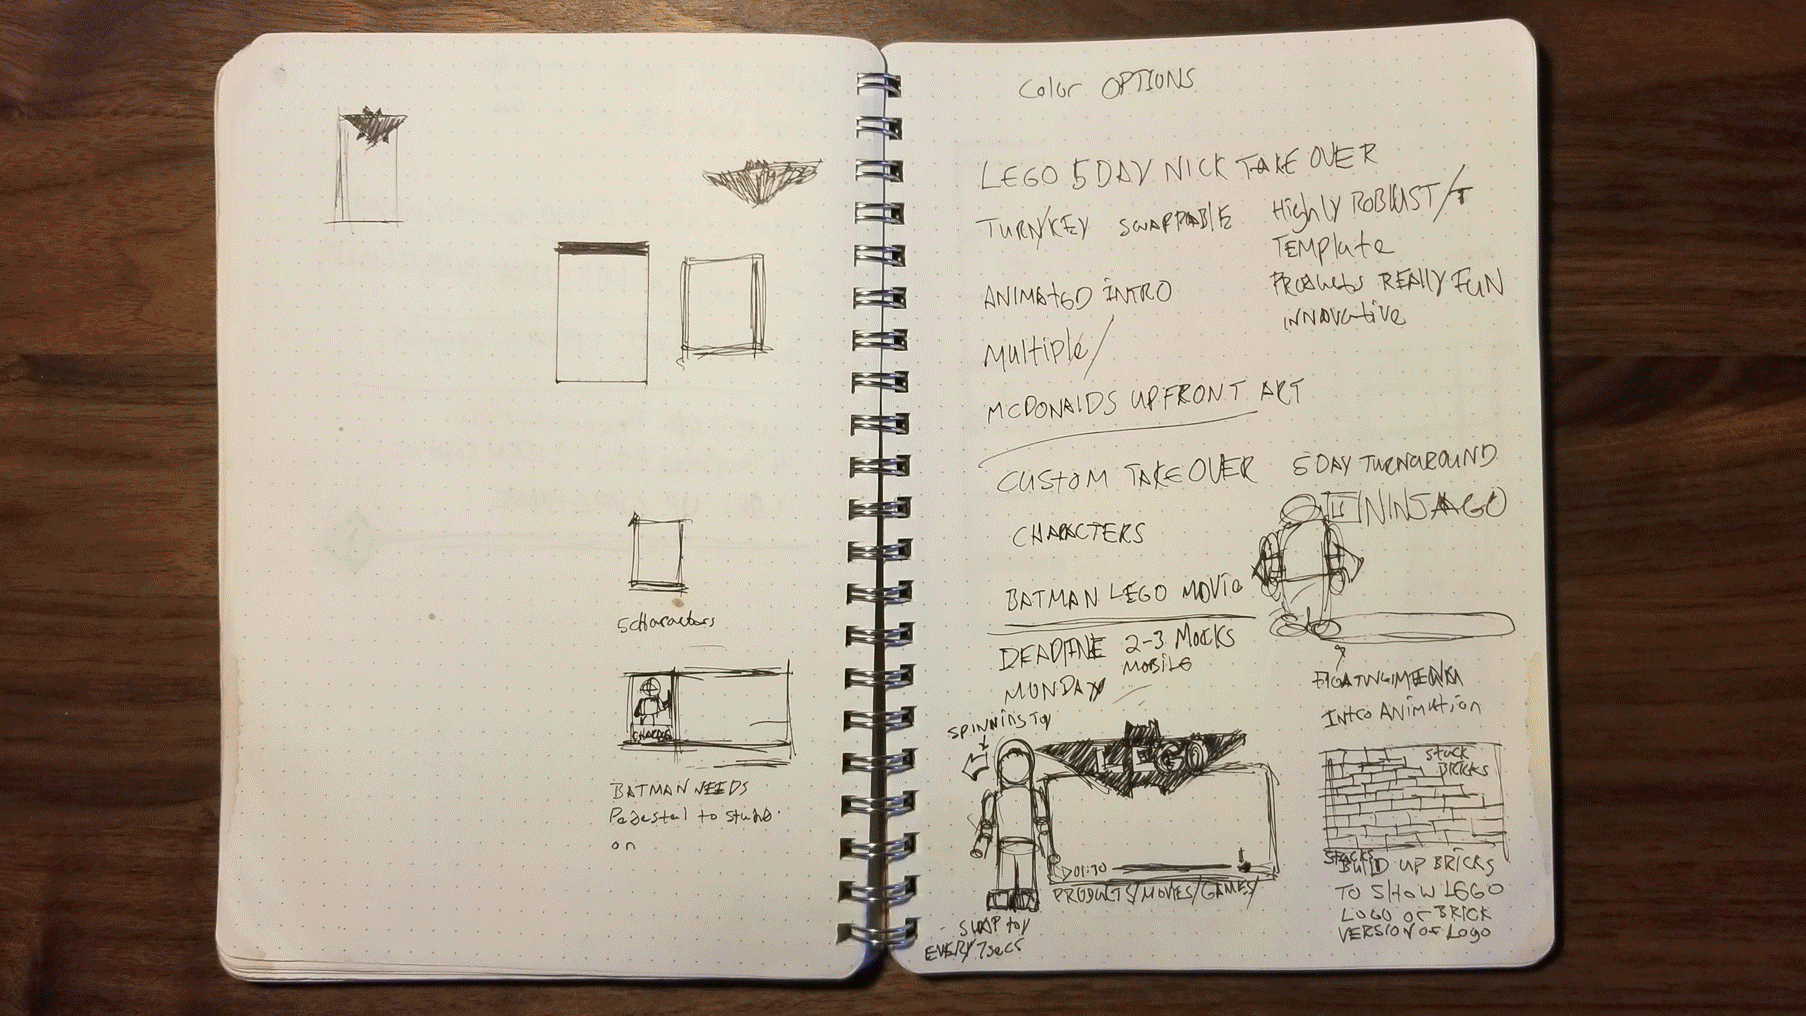 5 characters
BATMAN NEEDS
Pedestal to stand
on
Color OPTIONS
LEGO 5 DAY NICK TAKE OVER
TURN/KEY SWAPPABLE
Highly ROBUST/
TEMPlate
Products REAlly FUN
INNOVative
ANIMATED INTRO
Multiple/
MCDONAlDS UPFRONT ART
CUSTOM TAKEOVER 5 DAY TURNAROUND
NINJAGO
CHARACTERS
BATMAN LEGO MOVIE
DEADLINE 2-3 MOCKS
MOBILE
MONDAY
Intro ANIMAtion
SPINNING TOY
LEGO
01:30
PRODUCTS/MOVIES/GAMES/
SWAP toY
EVERY 7secs
Stack
BRICKS
BUILD UP BRICKS
TO SHOW LEGO
LOGO or BRICK
VERSION OF Logo